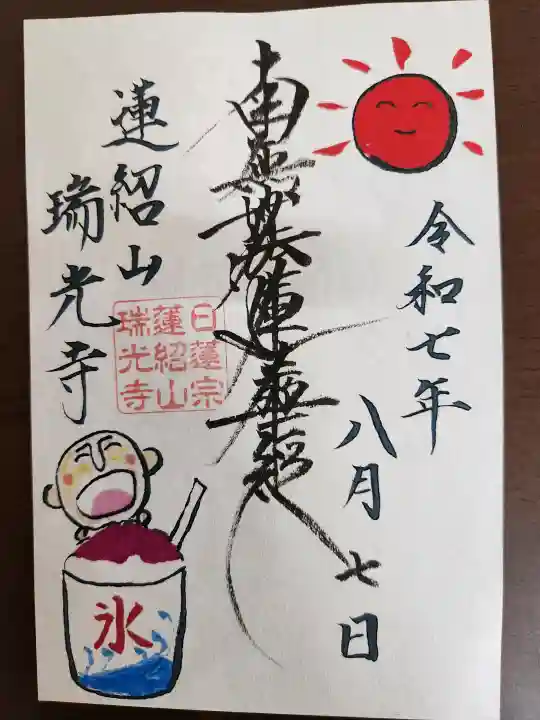 令和七年
八月七日
南無妙法蓮華経
蓮紹山
瑞光寺
日蓮宗
蓮紹山
瑞光寺
氷